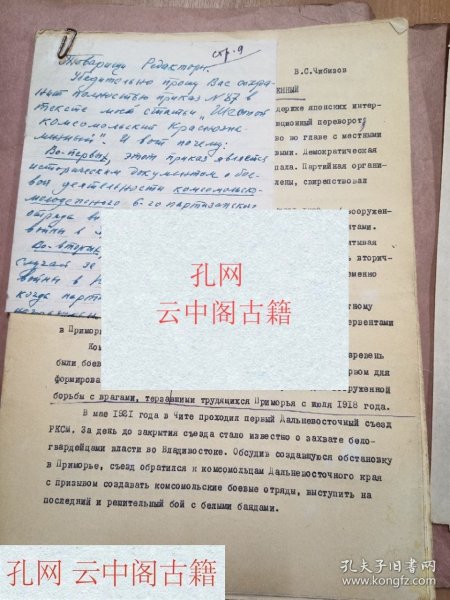 стр. 9
Товарищи Редакторы.
Убедительно прошу Вас сохра-
нить полностью приказ № 87 в
тексте моей статьи
комсомольский Краснозна-
менный". И вот почему:
Во-первых, этот приказ является
историческим документом о бое-
вой деятельности комсомольско-
молодежного 6-го партизанского
отряда
войны в
Во-вторых,
случай
войны в
когда
В.С.Чибизов
держке японских интер-
ционный переворот
во во главе с местными
выми. Демократическая
пала. Партийная органи-
лены, свирепствовал
вооружен-
нтами.
итывая
вторич-
еменно
тному
в Приморь
рвентами
Ком
еревень
были боев
рвом для
формирова
оруженной
борьбы с врагами, терзавшими трудящихся Приморья с июля 1918 года.
В мае 1921 года в Чите проходил первый Дальневосточный съезд
РКСМ. За день до закрытия съезда стало известно о захвате бело-
гвардейцами власти во Владивостоке. Обсудив создавшуюся обстановку
в Приморье, съезд обратился к комсомольцам Дальневосточного края
с призывом создавать комсомольские боевые отряды, выступить на
последний и решительный бой с белыми бандами.
孔网
云中阁古籍
孔网 云中阁古籍
孔夫子旧书网
www.kongfz.com